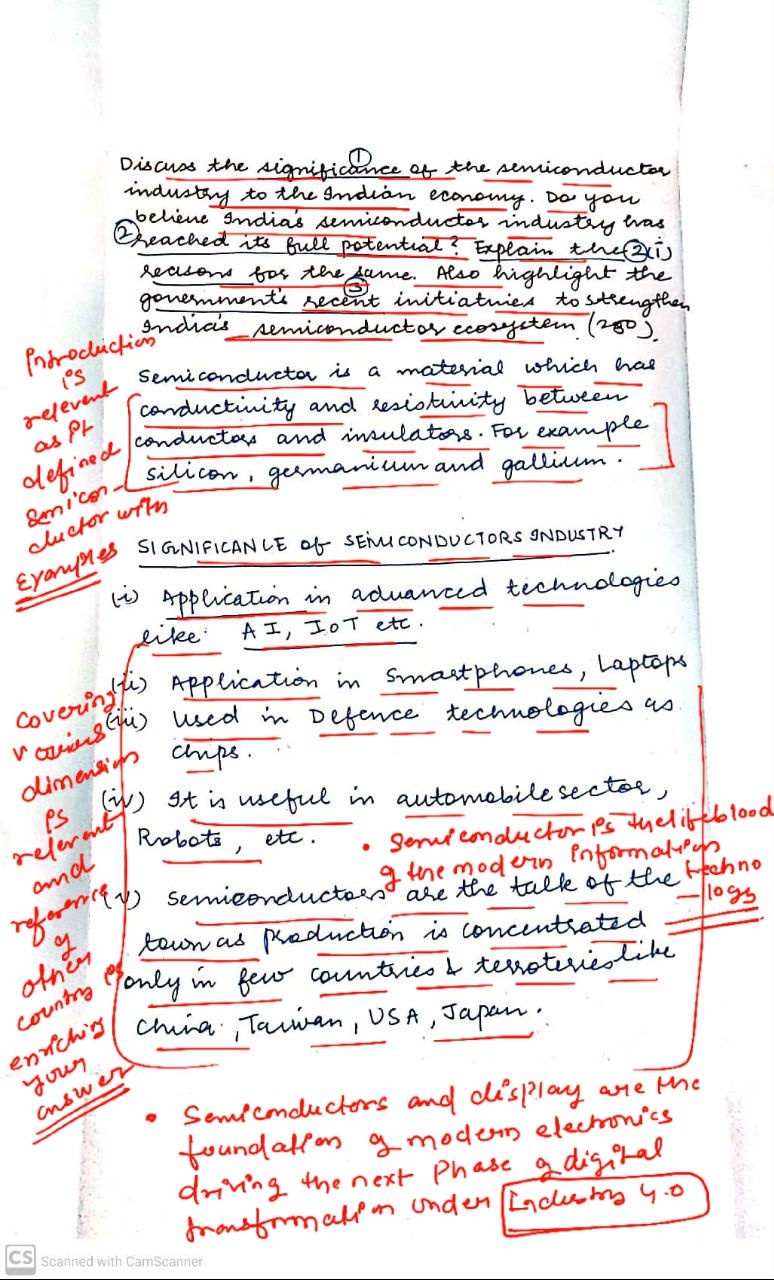 Discuss the significance of the semiconductor
①
industry to the Indian economy. Do you
believe India's semiconductor industry has
② reached its full potential? Explain the ②(i)
reasons for the same. Also highlight the
③
government's recent initiatives to strengthen
India's semiconductor ecosystem (250).
Introduction
is
relevent
as it
defined
semicon-
ductor with
Examples
Semiconductor is a material which has
conductivity and resistivity between
conductors and insulators. For example
silicon, germanium and gallium.
SIGNIFICANCE of SEMICONDUCTORS INDUSTRY
(i) Application in advanced technologies
like AI, IoT etc.
(ii) Application in Smartphones, Laptops
(iii) Used in Defence technologies as
chips.
(iv) It is useful in automobile sector,
Robots, etc.
• Semiconductor is the lifeblood
of the modern Information
techno
-logy
(v) Semiconductors are the talk of the
town as production is concentrated
only in few countries & terroteries like
China, Taiwan, USA, Japan.
covering
various
dimension
is
relevant
and
reference
of
other
country is
enriching
your
answer
• Semiconductors and display are the
foundation of modern electronics
driving the next Phase of digital
transformation under Industry 4.0
CS Scanned with CamScanner